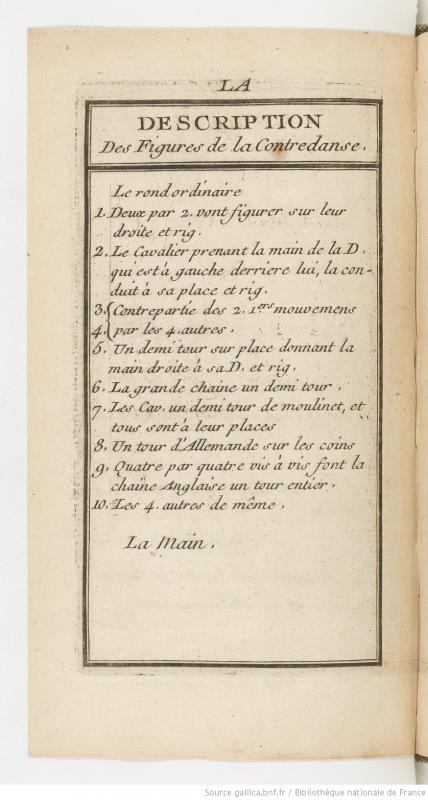 LA
DESCRIPTION
Des Figures de la Contredanse.
Le rond ordinaire
1. Deux par 2. vont figurer sur leur
droite et rig.
2. Le Cavalier prenant la main de la D.
qui est à gauche derriere lui, la con-
duit à sa place et rig.
3. Contrepartie des 2. 1ers mouvemens
4. par les 4. autres.
5. Un demi tour sur place donnant la
main droite à sa D. et rig.
6. La grande chaine un demi tour.
7. Les Cav. un demi tour de moulinet, et
tous sont à leur places
8. Un tour d'Allemande sur les coins
9. Quatre par quatre vis à vis font la
chaîne Anglaise un tour entier.
10. Les 4. autres de même.
La Main.
Source gallica.bnf.fr / Bibliothèque nationale de France